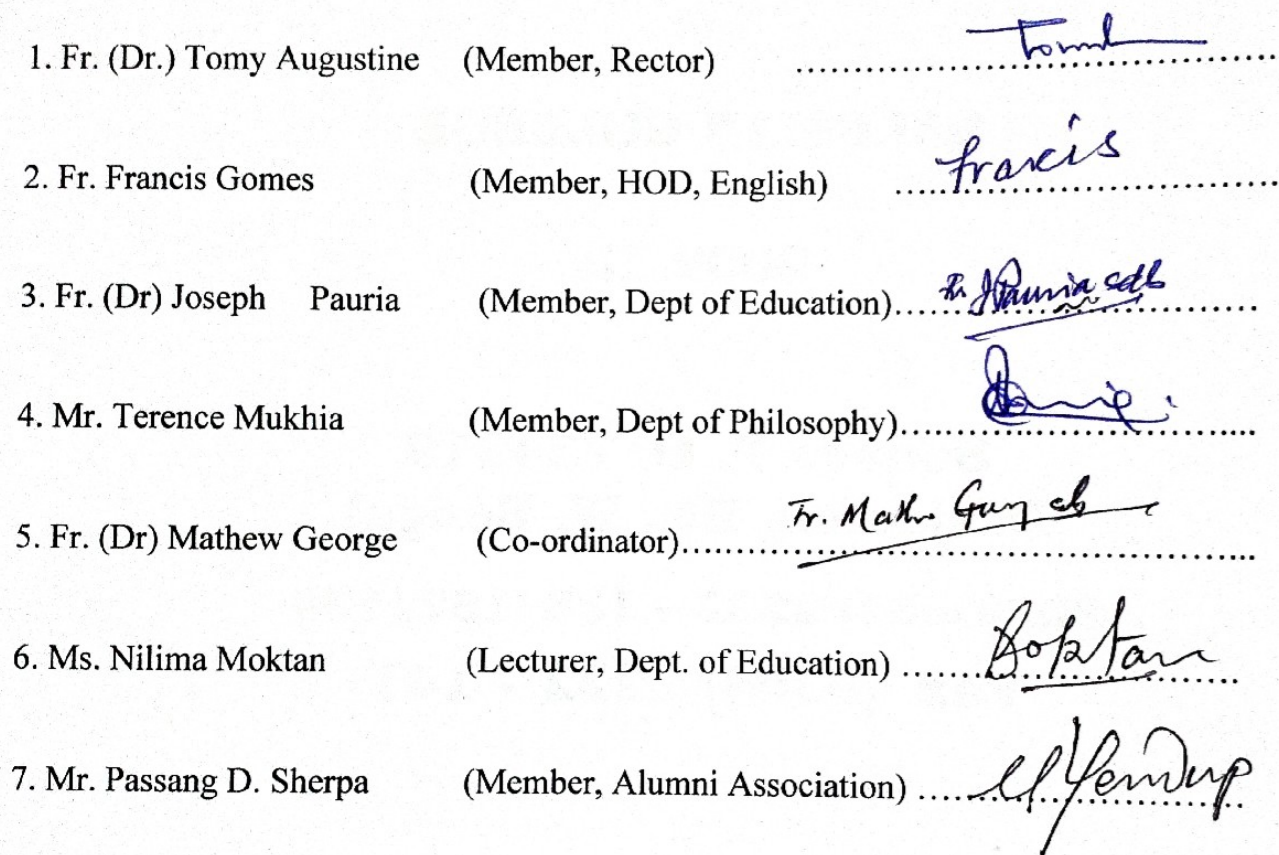 1. Fr. (Dr.) Tomy Augustine (Member, Rector) ..............................
2. Fr. Francis Gomes (Member, HOD, English) ..... Francis ..............................
3. Fr. (Dr) Joseph Pauria (Member, Dept of Education)..... Pauria sdb ..............................
4. Mr. Terence Mukhia (Member, Dept of Philosophy)..............................
5. Fr. (Dr) Mathew George (Co-ordinator)..... Fr. ..............................
6. Ms. Nilima Moktan (Lecturer, Dept. of Education) ..............................
7. Mr. Passang D. Sherpa (Member, Alumni Association) ..............................